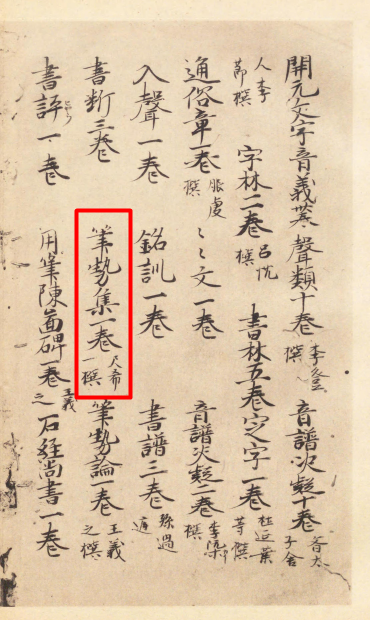 開元文字音義聲類十卷李登撰音譜决疑十卷齊太子舍
人李節撰字林二卷呂忱撰書林五卷定字一卷杜延業等撰
通俗章一卷服虔撰〻〻文一卷音譜决疑二卷撰
入聲一卷銘訓一卷書譜三卷孫過庭
書斷三卷筆勢集一卷尺希一撰筆勢論一卷王羲之撰
書評一卷用筆陳啚碑一卷王羲之石經尚書一卷